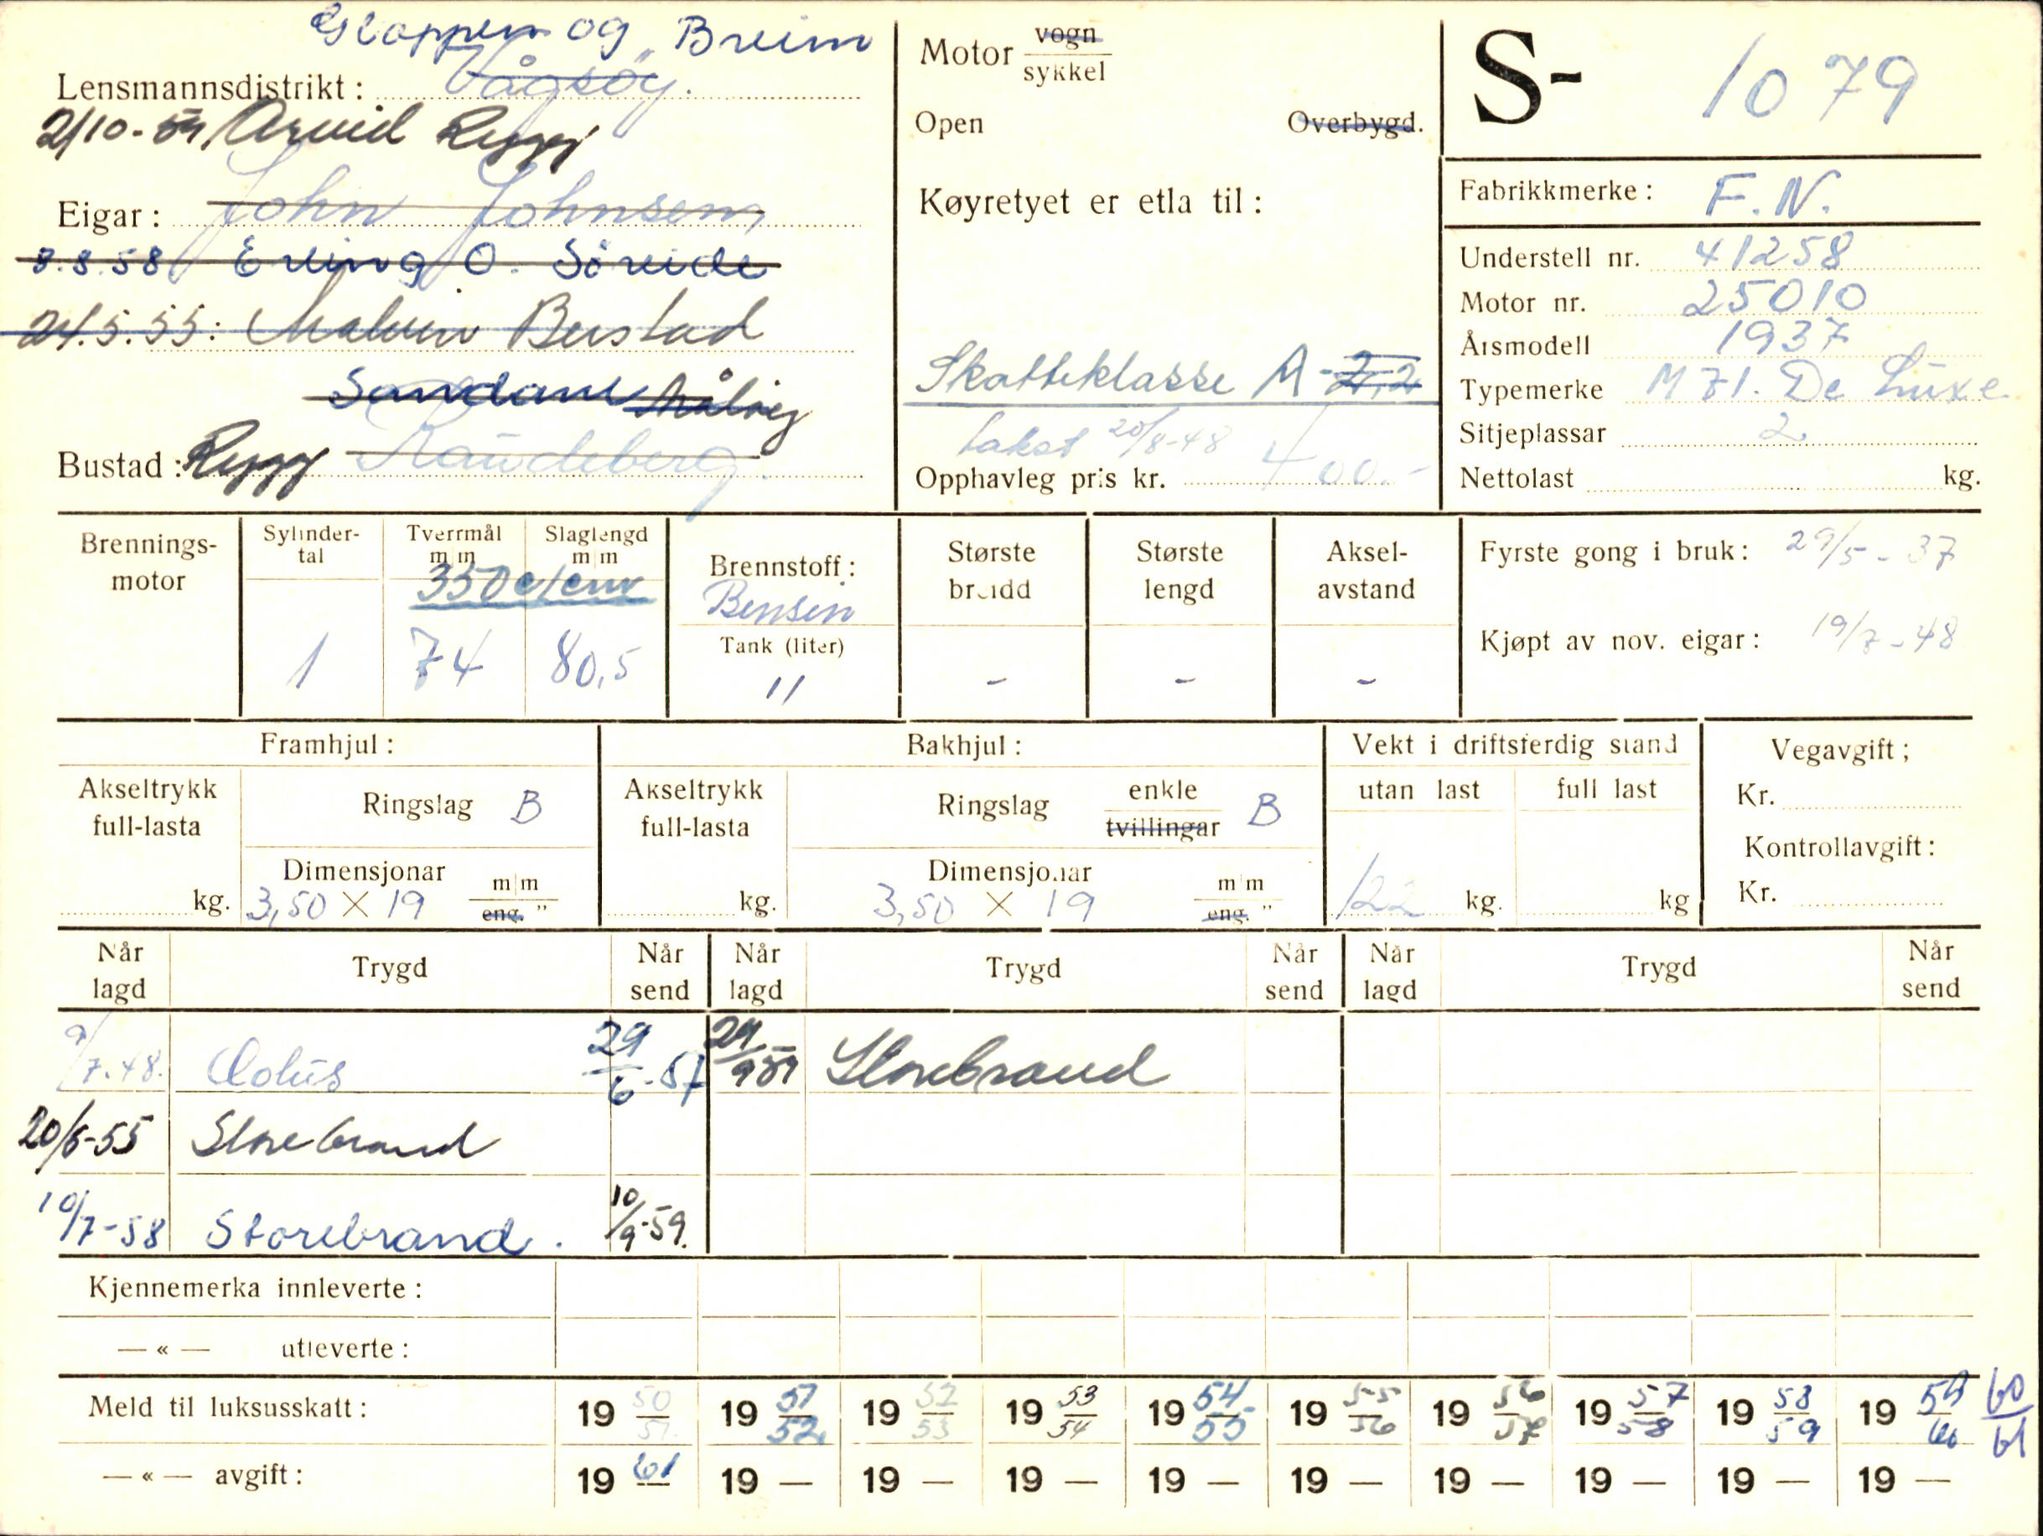 Gloppen og Breim
Lensmannsdistrikt: Vågsøy.
2/10-59, Arvid Rygg
Eigar: John Johnsen,
8.8.58 Erling O. Söreide
24.5.55: Malvin Berstad
Sandane Ålvig
Bustad: Rygg Raudeberg.
Motor vogn
sykkel
Open Overbygd.
Køyretyet er etla til:
Skatteklasse A-2,2
takst 20/8-48
Opphavleg pris kr. 400.-
S- 1079
Fabrikkmerke: F.N.
Understell nr. 41258
Motor nr. 25010
Årsmodell 1937
Typemerke M 71. De Luxe
Sitjeplassar 2
Nettolast kg.
Brennings-
motor
Sylinder-
tal
1
Tverrmål
m|m
350 c/cm
74
Slaglengd
m|m
80,5
Brennstoff:
Bensin
Tank (liter)
11
Største
breidd
-
Største
lengd
-
Aksel-
avstand
-
Fyrste gong i bruk: 29/5-37
Kjøpt av nov. eigar: 19/7-48
Framhjul:
Akseltrykk
full-lasta
kg.
Ringslag B
Dimensjonar
3,50 X 19 m|m
eng. "
Bakhjul:
Akseltrykk
full-lasta
kg.
Ringslag enkle
tvillingar B
Dimensjonar
3,50 X 19 m|m
eng. "
Vekt i driftsferdig stand
utan last full last
122 kg. kg
Vegavgift;
Kr.
Kontrollavgift:
Kr.
Når
lagd Trygd Når
send Når
lagd Trygd Når
send Når
lagd Trygd Når
send
9/7.48. Aolus 29/6-57 24/9 59 Storebrand
20/5-55 Storebrand
10/7-58 Storebrand. 10/9-59.
Kjennemerka innleverte:
— « — utleverte:
Meld til luksusskatt: 19 50/51 19 51/52 19 52/53 19 53/54 19 54/55 19 55/56 19 56/57 19 57/58 19 58/59 19 59/60 60/61
— « — avgift: 19 61 19 — 19 — 19 — 19 — 19 — 19 — 19 — 19 — 19 —